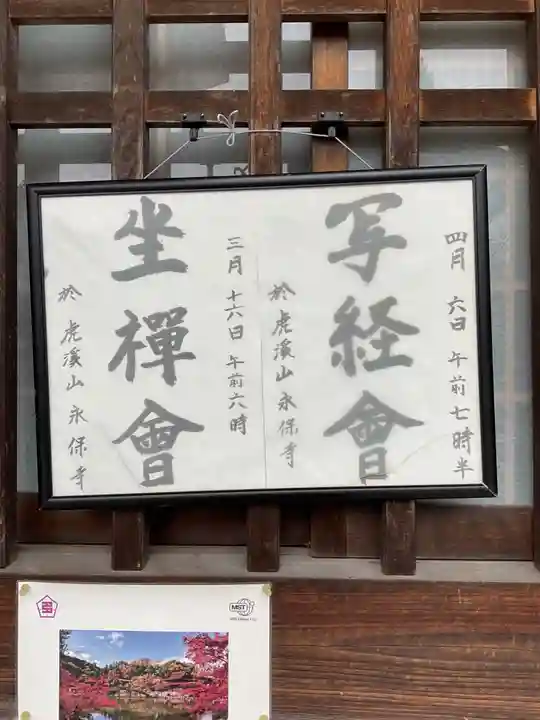 四月 六日 午前七時半
写経會
於 虎溪山 永保寺
三月 十六日 午前六時
坐禪會
於 虎溪山 永保寺
MST